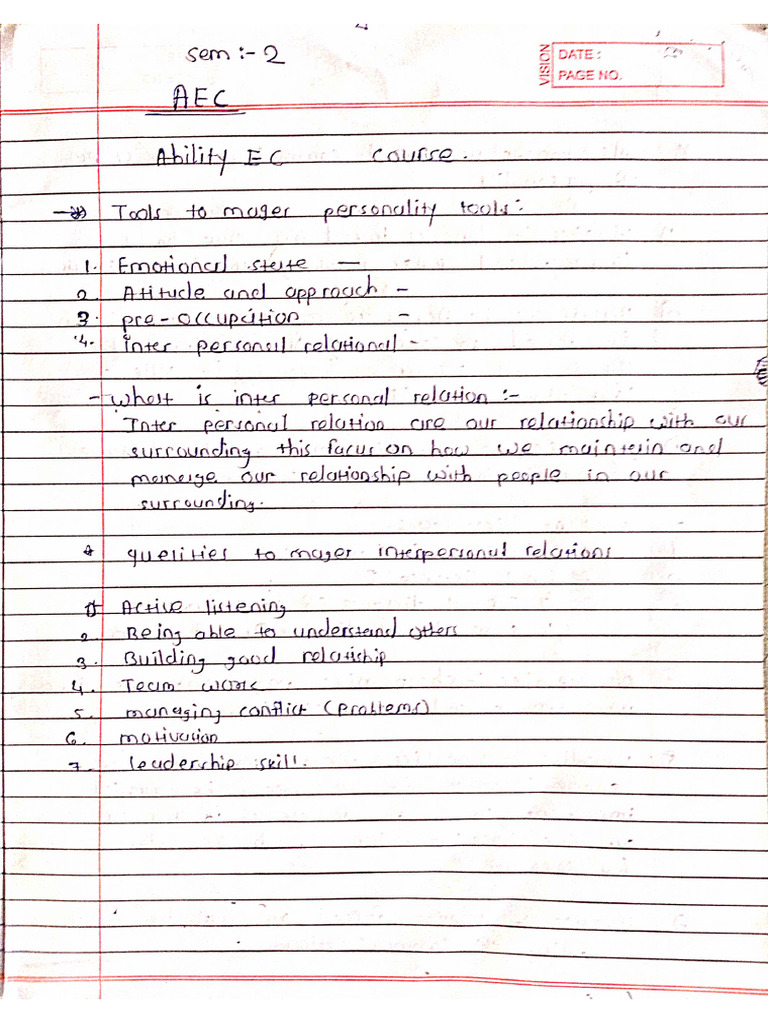 sem :- 2
VISION
DATE :
PAGE NO.
AEC
Ability EC course.
Tools to mager personality tools :-
1. Emotional state —
2. Atitude and approach -
3. pre-occupation -
4. inter personal relational -
- What is inter personal relation :-
Inter personal relation are our relationship with our
surrounding this focus on how we maintain and
manage our relationship with people in our
surrounding.
* qualities to mager interpersonal relations
1 Active listening
2. Being able to understand others
3. Building good relatiship
4. Team work
5. managing conflict (problems)
6. motivation
7. leadership skill.